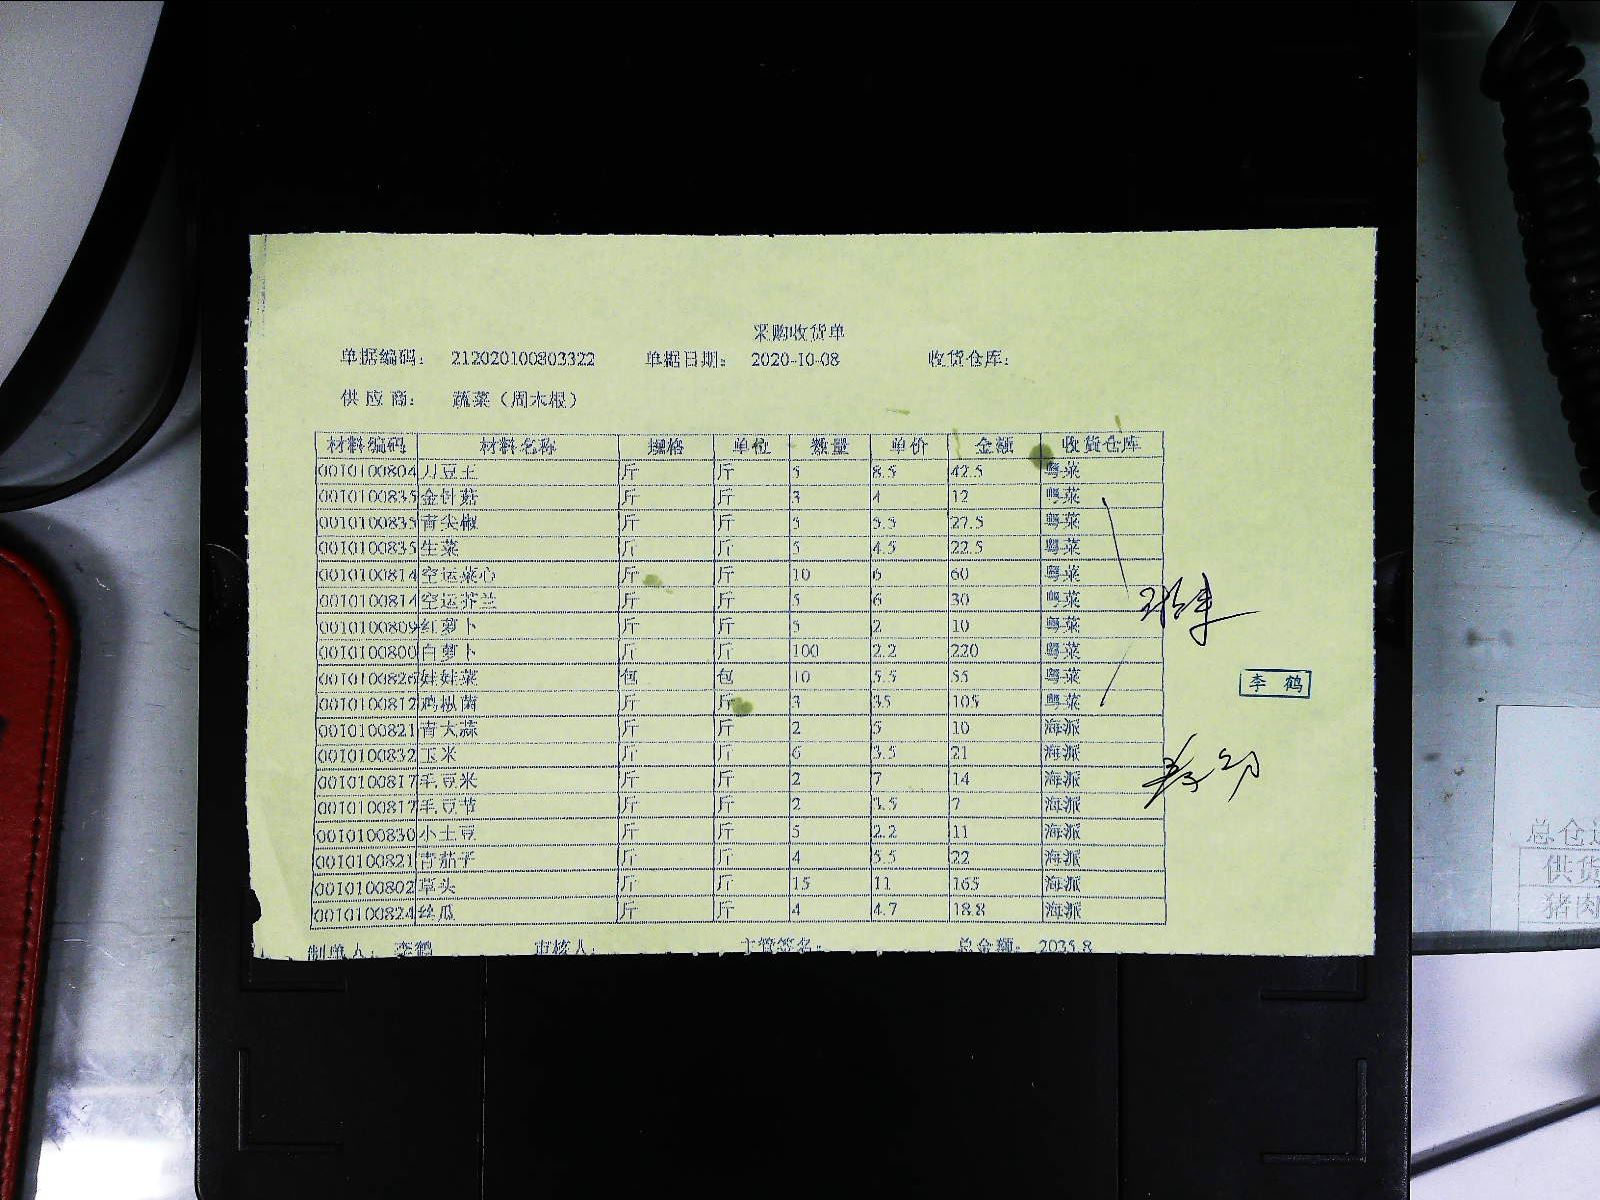 采购收货单
单据编码： 212020100803322 单据日期： 2020-10-08 收货仓库：
供 应 商： 蔬菜（周木根）
材料编码 材料名称 规格 单位 数量 单价 金额 收货仓库
0010100804 刀豆王 斤 斤 5 8.5 42.5 粤菜
0010100835 金针菇 斤 斤 3 4 12 粤菜
0010100835 青尖椒 斤 斤 5 5.5 27.5 粤菜
0010100835 生菜 斤 斤 5 4.5 22.5 粤菜
0010100814 空运菜心 斤 斤 10 6 60 粤菜
0010100814 空运芥兰 斤 斤 5 6 30 粤菜
0010100809 红萝卜 斤 斤 5 2 10 粤菜
0010100800 白萝卜 斤 斤 100 2.2 220 粤菜
0010100826 娃娃菜 包 包 10 5.5 55 粤菜
0010100812 鸡枞菌 斤 斤 3 35 105 粤菜
0010100821 青大蒜 斤 斤 2 5 10 海派
0010100832 玉米 斤 斤 6 3.5 21 海派
0010100817 毛豆米 斤 斤 2 7 14 海派
0010100817 毛豆节 斤 斤 2 3.5 7 海派
0010100830 小土豆 斤 斤 5 2.2 11 海派
0010100821 青茄子 斤 斤 4 5.5 22 海派
0010100802 草头 斤 斤 15 11 165 海派
0010100824 丝瓜 斤 斤 4 4.7 18.8 海派
制单人： 李鹤 审核人： 主管签名： 总金额： 2035.8
李 鹤
总仓
供货
猪肉